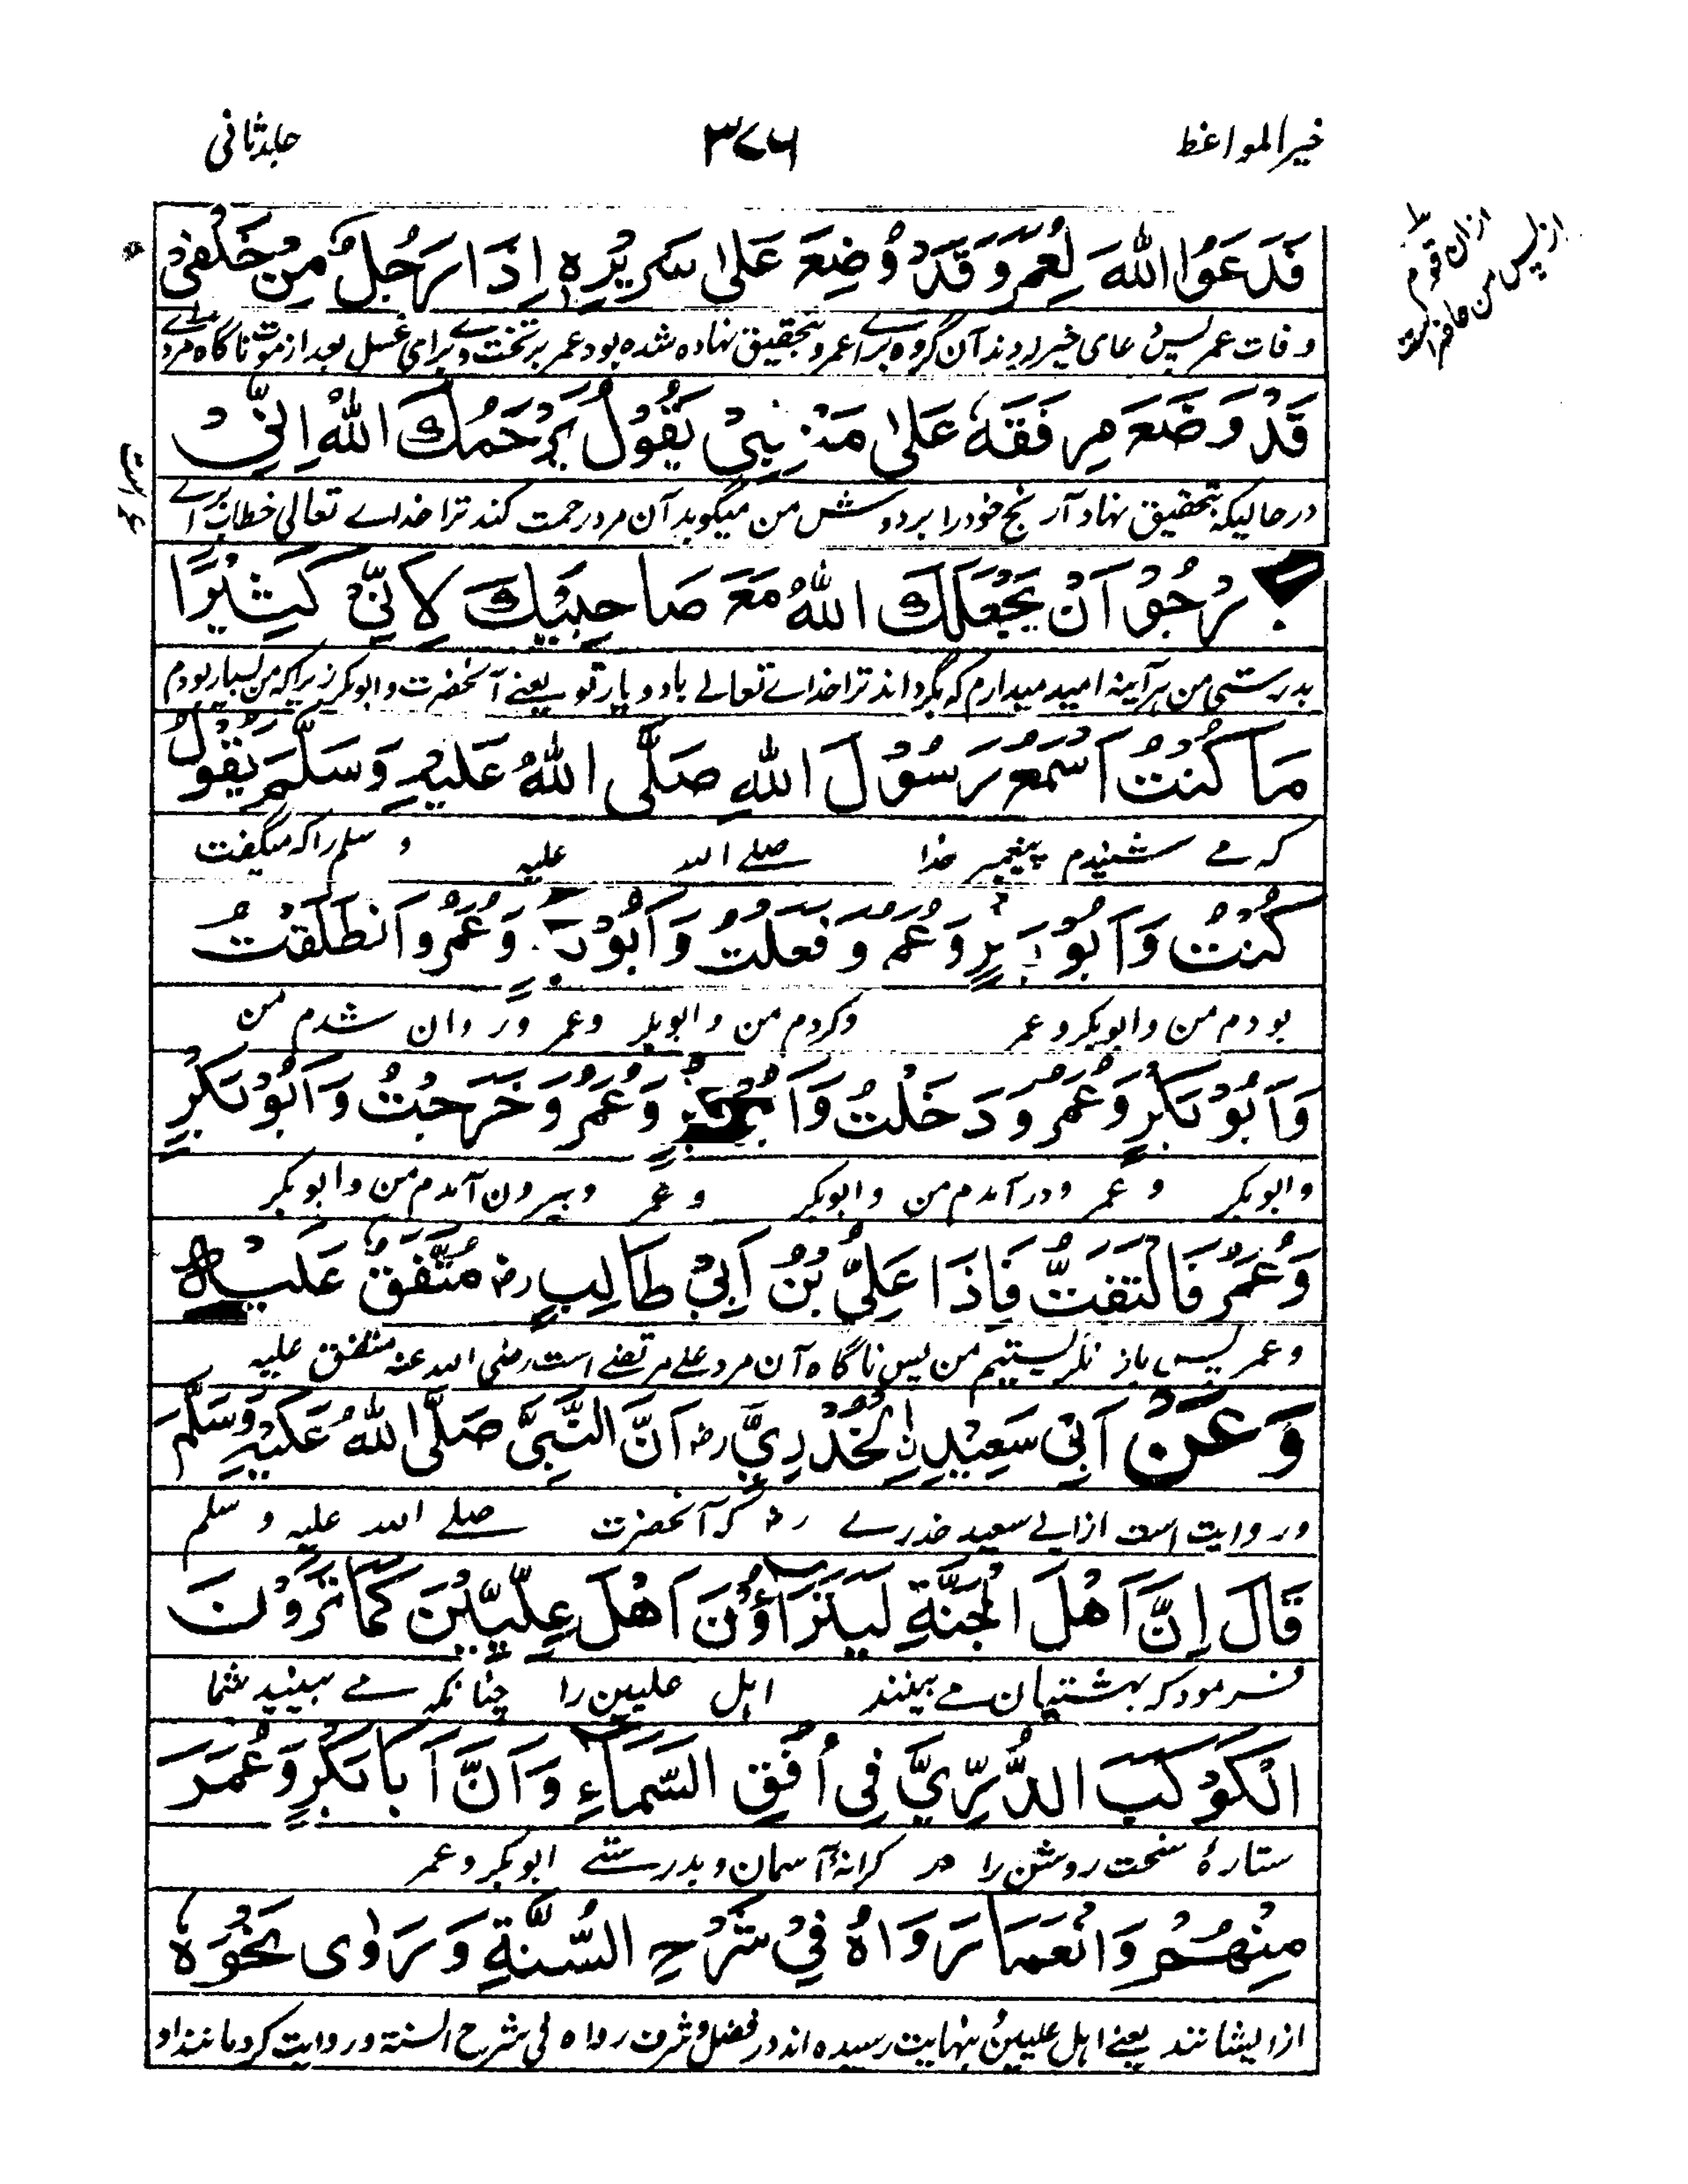 خیر المواعظ
۳۷۶
جلد ثانی
فَدَعَوُا اللّٰهَ لِعُمَرَ وَقَدْ وُضِعَ عَلٰی سَرِیْرِهٖ اِذَا رَجُلٌ مِنْ خَلْفِیْ
وفات عمر پس دعای خیر کردند آن گروه برای عمر و بتحقیق نهاده شده بود عمر بر تخت وے برای غسل بعد از موت ناگاه مردے
از پس من
قَدْ وَضَعَ مِرْفَقَهٗ عَلٰی مَنْکِبِیْ یَقُوْلُ یَرْحَمُكَ اللّٰهُ اِنِّیْ
در حالیکه بتحقیق نهاد آرنج خود را بر دوش من میگوید آن مرد رحمت کند ترا خداے تعالی خطاب براے
عمر است
لَاَرْجُوْ اَنْ یَّجْعَلَكَ اللّٰهُ مَعَ صَاحِبَیْكَ لِاَنِّیْ كَثِیْرًا
بدرستی من هر آینه امید میدارم که بگرداند ترا خداے تعالے با دو یار تو یعنے آنحضرت و ابوبکر زیرا که من بسیار بودم
مَا كُنْتُ اَسْمَعُ رَسُوْلَ اللّٰهِ صَلَّی اللّٰهُ عَلَیْهِ وَسَلَّمَ یَقُوْلُ
که مے شنیدم پیغمبر خدا صلے الله علیه و سلم را که میگفت
كُنْتُ وَاَبُوْ بَكْرٍ وَعُمَرُ وَفَعَلْتُ وَاَبُوْ بَكْرٍ وَعُمَرُ وَانْطَلَقْتُ
بودم من و ابوبکر و عمر وکردم من و ابوبکر و عمر و روان شدم من
وَاَبُوْ بَكْرٍ وَعُمَرُ وَدَخَلْتُ وَاَبُوْ بَكْرٍ وَعُمَرُ وَخَرَجْتُ وَاَبُوْ بَكْرٍ
وابوبکر و عمر ودر آمدم من و ابوبکر و عمر و بیرون آمدم من و ابوبکر
وَعُمَرُ فَالْتَفَتُّ فَاِذَا عَلِیُّ بْنُ اَبِیْ طَالِبٍ رض مُتَّفَقٌ عَلَیْهِ
و عمر پس باز نگریستیم من پس ناگاه آن مرد علے مرتضے است رضی الله عنه متفق علیه
وَعَنْ اَبِیْ سَعِیْدِ نِ الْخُدْرِیِّ رض اَنَّ النَّبِیَّ صَلَّی اللّٰهُ عَلَیْهِ وَسَلَّمَ
و روایت است از ابے سعید خدرے رض که آنحضرت صلے الله علیه و سلم
قَالَ اِنَّ اَهْلَ الْجَنَّةِ لَیَتَرَاؤُنَ اَهْلَ عِلِّیِّیْنَ كَمَا تَرَوْنَ
فرمود که بهشتیان مے بینند اهل علیین را چنانکه مے بینید شما
الْكَوْكَبَ الدُّرِّیَّ فِی اُفُقِ السَّمَآءِ وَاَنَّ اَبَا بَكْرٍ وَعُمَرَ
ستارۀ سخت روشن را در کرانۀ آسمان و بدرستے ابوبکر و عمر
مِنْهُمْ وَاَنْعَمَا رَوَاهُ فِیْ شَرْحِ السُّنَّةِ وَرَوٰی نَحْوَهٗ
از ایشانند یعنے اهل علیین و بنهایت رسیده اند در فضل و شرف رواه فی شرح السنة و روایت کرد مانند او